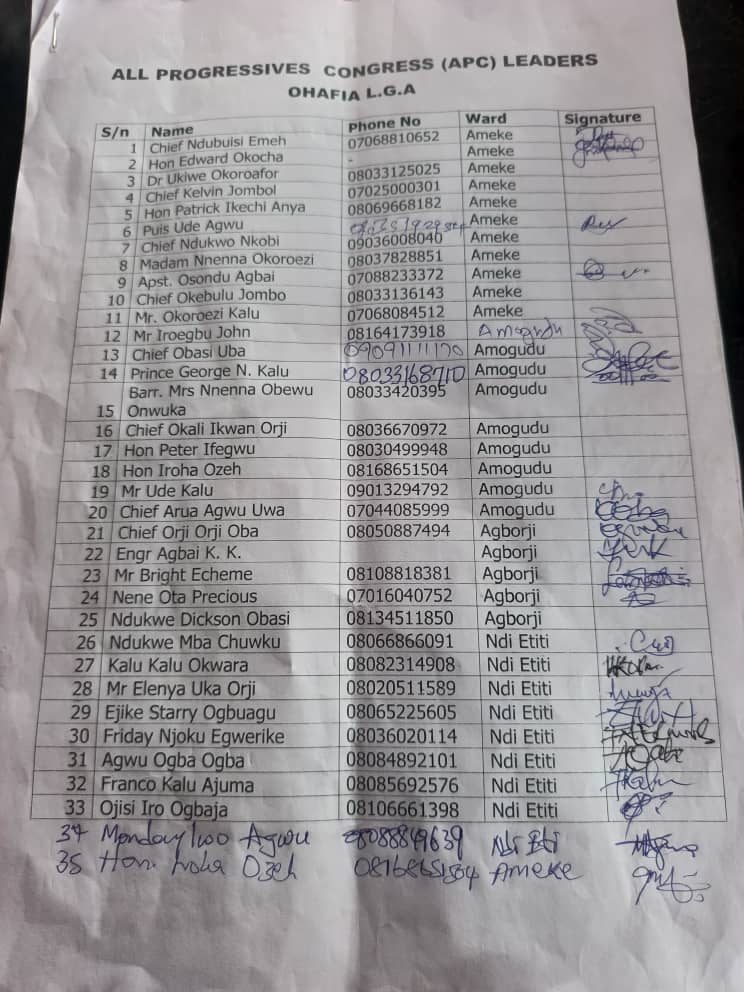 ALL PROGRESSIVES CONGRESS (APC) LEADERS
OHAFIA L.G.A
S/n Name Phone No Ward Signature
1 Chief Ndubuisi Emeh 07068810652 Ameke
2 Hon Edward Okocha - Ameke
3 Dr Ukiwe Okoroafor 08033125025 Ameke
4 Chief Kelvin Jombol 07025000301 Ameke
5 Hon Patrick Ikechi Anya 08069668182 Ameke
6 Puis Ude Agwu Ameke
7 Chief Ndukwo Nkobi 09036008040 Ameke
8 Madam Nnenna Okoroezi 08037828851 Ameke
9 Apst. Osondu Agbai 07088233372 Ameke
10 Chief Okebulu Jombo 08033136143 Ameke
11 Mr. Okoroezi Kalu 07068084512 Ameke
12 Mr Iroegbu John 08164173918 Amogudu
13 Chief Obasi Uba 09091111170 Amogudu
14 Prince George N. Kalu 08033168710 Amogudu
Barr. Mrs Nnenna Obewu 08033420395 Amogudu
15 Onwuka
16 Chief Okali Ikwan Orji 08036670972 Amogudu
17 Hon Peter Ifegwu 08030499948 Amogudu
18 Hon Iroha Ozeh 08168651504 Amogudu
19 Mr Ude Kalu 09013294792 Amogudu
20 Chief Arua Agwu Uwa 07044085999 Amogudu
21 Chief Orji Orji Oba 08050887494 Agborji
22 Engr Agbai K. K. Agborji
23 Mr Bright Echeme 08108818381 Agborji
24 Nene Ota Precious 07016040752 Agborji
25 Ndukwe Dickson Obasi 08134511850 Agborji
26 Ndukwe Mba Chuwku 08066866091 Ndi Etiti
27 Kalu Kalu Okwara 08082314908 Ndi Etiti
28 Mr Elenya Uka Orji 08020511589 Ndi Etiti
29 Ejike Starry Ogbuagu 08065225605 Ndi Etiti
30 Friday Njoku Egwerike 08036020114 Ndi Etiti
31 Agwu Ogba Ogba 08084892101 Ndi Etiti
32 Franco Kalu Ajuma 08085692576 Ndi Etiti
33 Ojisi Iro Ogbaja 08106661398 Ndi Etiti
34 Monday Iwo Agwu 08088849639 Ndi Etiti
35 Hon. Iroha Ozeh 08168651504 Ameke